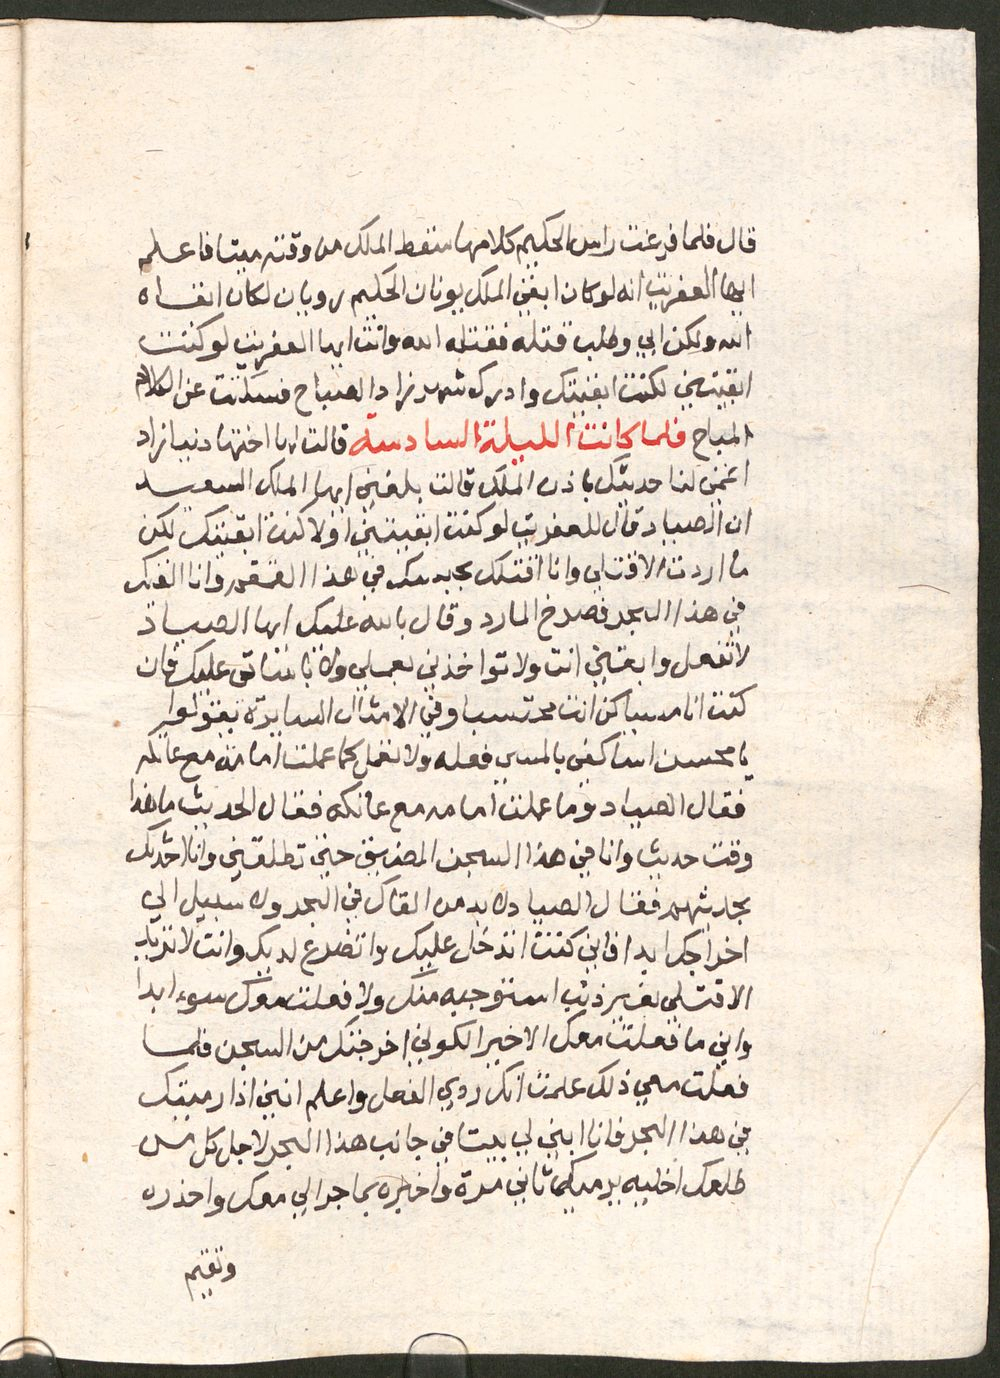 قال فلما فرغت راس الحكيم كلامها سقط الملك من وقته ميتا فاعلم
ايها العفريت انه لو كان ابقى الملك يونان الحكيم رويان لكان ابقاه
الله ولكن ابى وطلب قتله فقتله الله وانت ايها العفريت لو كنت
ابقيتني لكنت ابقيتك وادرك شهرزاد الصباح فسكتت عن الكلام
المباح فلما كانت الليلة السادسة قالت لها اختها دنيازاد
اتمي لنا حديثك باذن الملك قالت بلغني ايها الملك السعيد
ان الصياد قال للعفريت لو كنت ابقيتني اولا كنت ابقيتك لكن
ما اردت الا قتلي وانا اقتلك بحبسك في هذا القمقم وانا القيك
في هذا البحر فصرخ المارد وقال بالله عليك ايها الصياد
لا تفعل وابقني انت ولا تواخذني بعملي وانا ابقى عليك فان
كنت انا مسيا كن انت محتسبا وفي الامثال السايرة يقولوا
يا محسن اسا كفى بالمسي فعله ولا تعمل كما عملت امامة مع عاتكه
فقال الصياد وما عملت امامه مع عاتكه فقال الحديث ما هذا
وقت حديث وانا في هذا السجن المضيق حتى تطلقني وانا احدثك
بحديثهم فقال الصياد لا بد من القاك في البحر ولا سبيل الى
اخراجك ابدا فاني كنت اتدخل عليك واتضرع لديك وانت لا تريد
الا قتلي بغير ذنب استوجبه منك ولا فعلت معك سوء ابدا
واني ما فعلت معك الا خير الكوني اخرجتك من السجن فلما
فعلت معي ذلك علمت انك ردي الفعل واعلم انني اذا رميتك
في هذا البحر فانا ابني لي بيتا في جانب هذا البحر لاجل كل من
طلعك اخليه يرميك ثاني مرة واخبره بما جرا لي معك واحذره
وتقيم